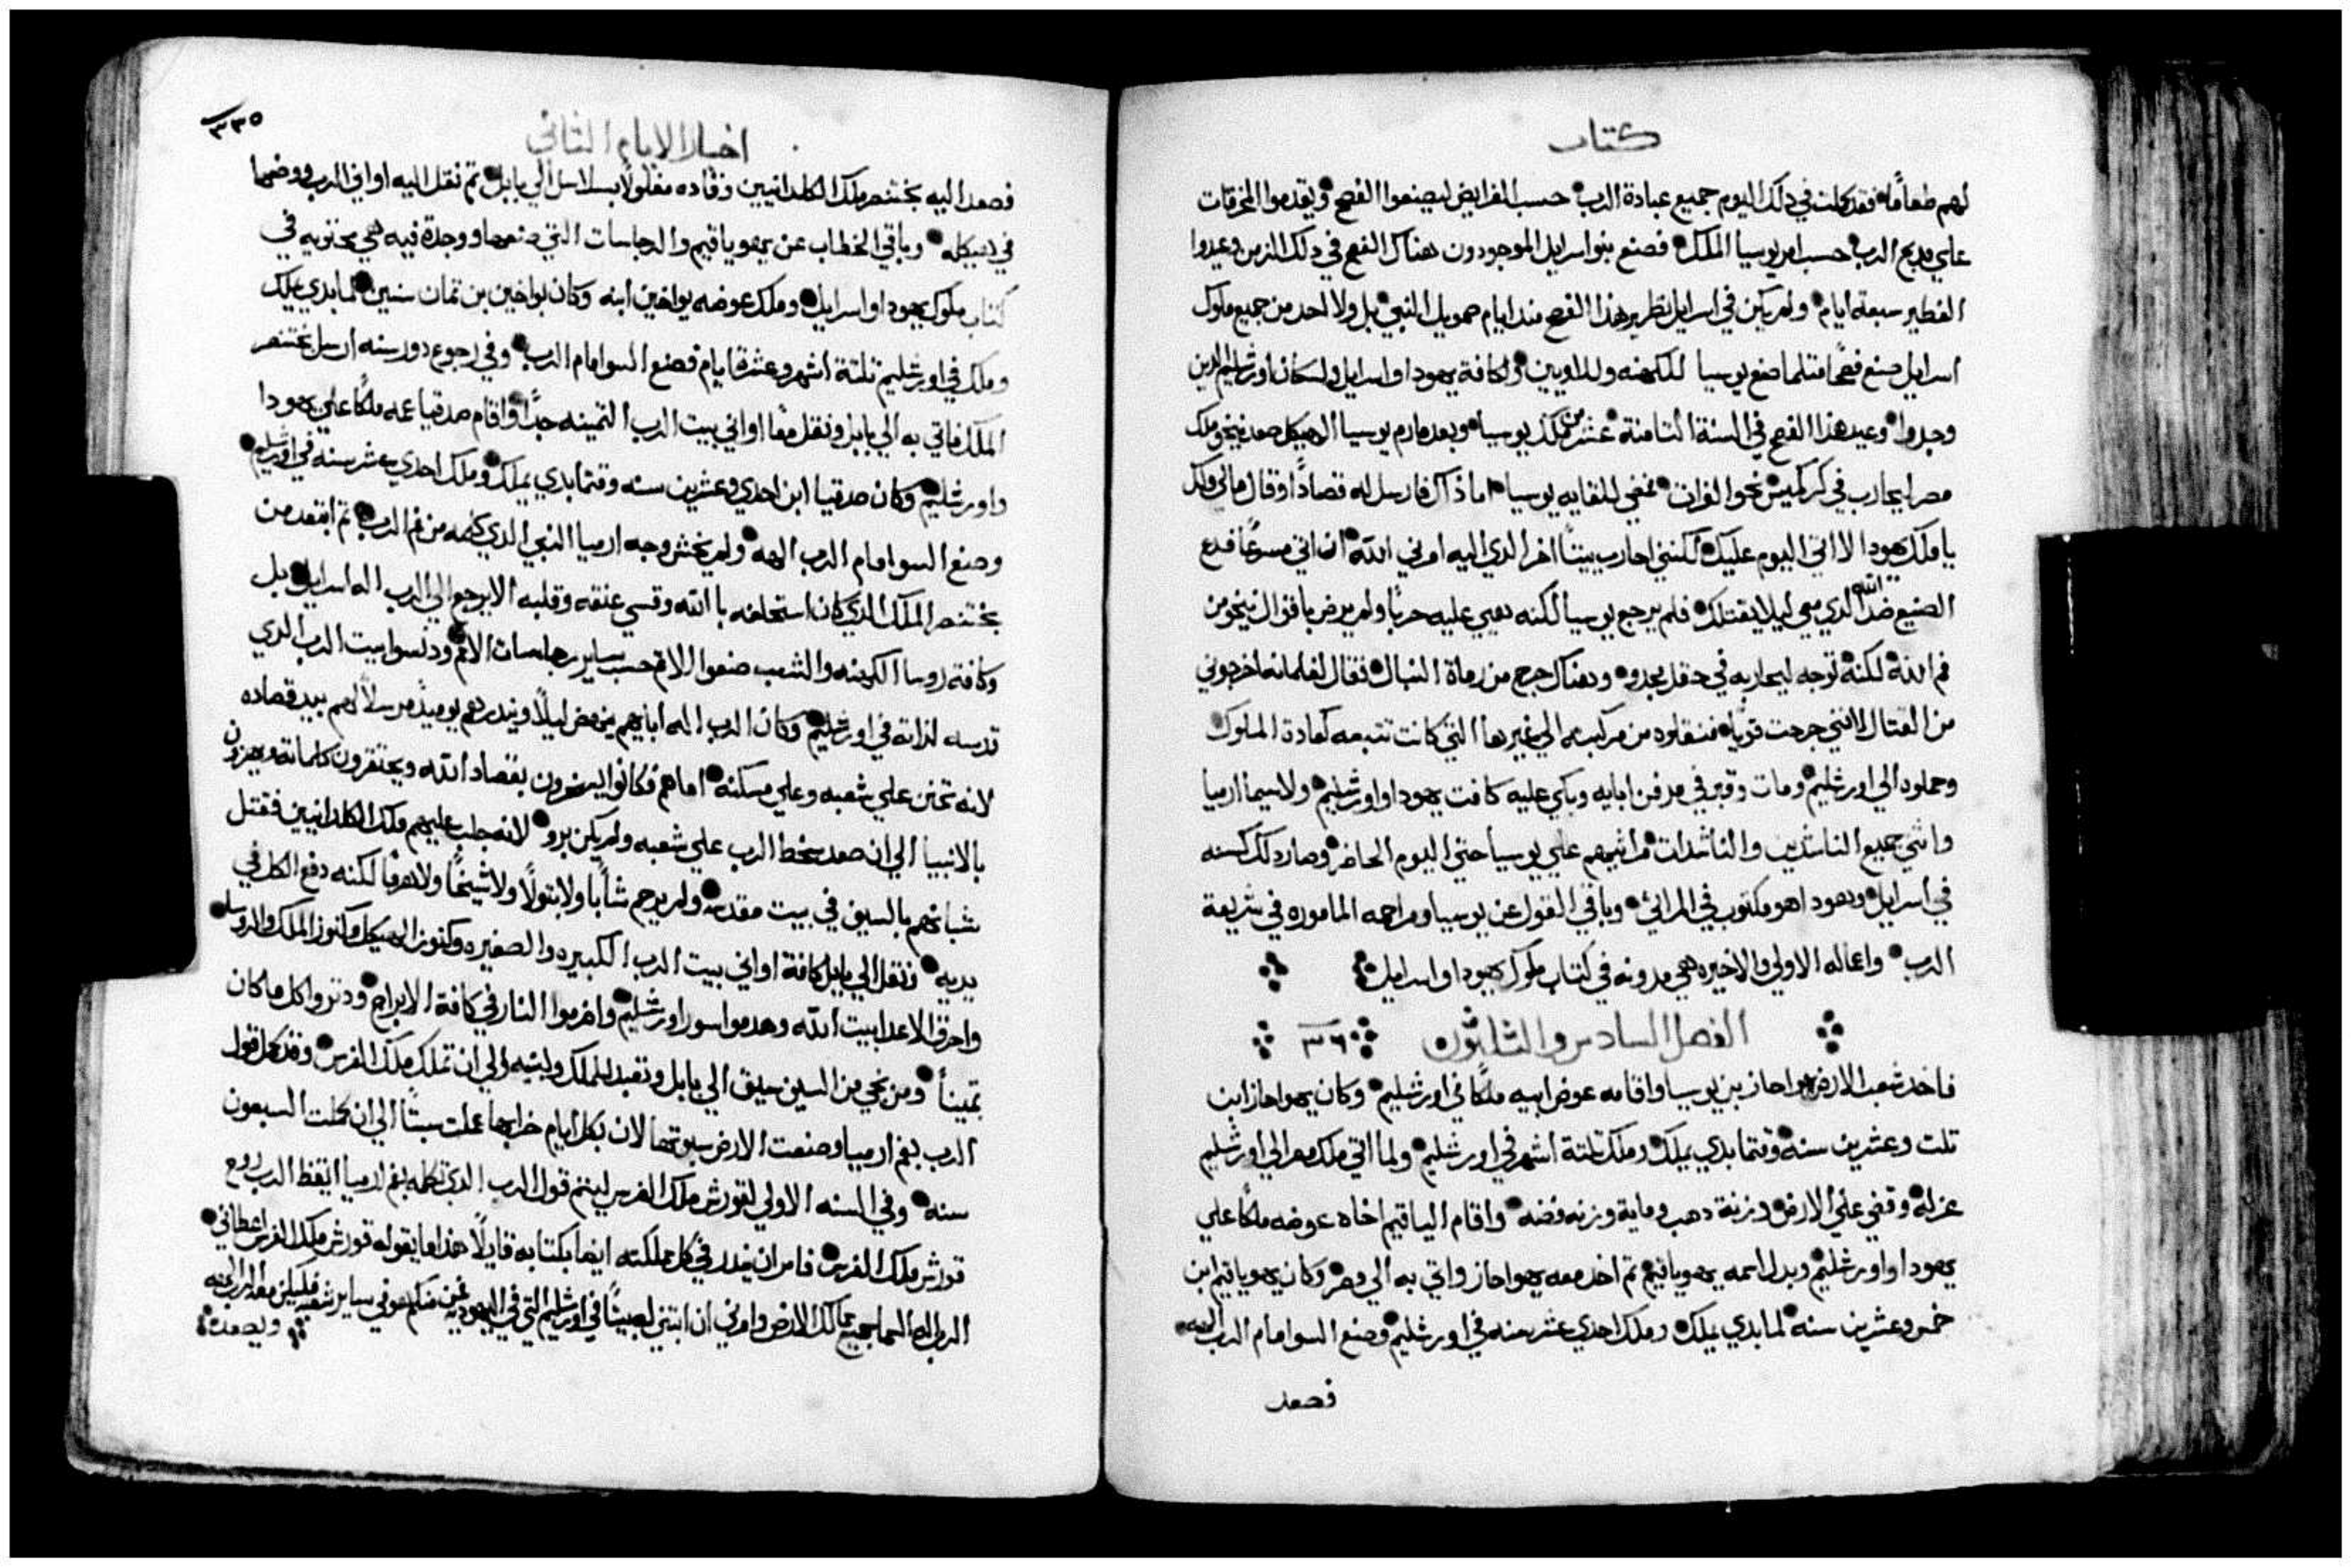 كتاب
لهم طعامًا فقد كملت في ذلك اليوم جميع عبادة الرب حسب الفرايض ليصنعوا الفصح ويقدموا المحرقات
علي مدبح الرب حسب امر يوسيا الملك فصنع بنو اسرايل الموجودون هناك الفصح في ذلك الزمن وعيدوا
الفطير سبعة ايام ولم يكن في اسرايل نظير هذا الفصح مند ايام صمويل النبي بل ولا احد من جميع ملوك
اسرايل صنع فصحًا متلما صنع يوسيا للكهنه وللاويين ولكافة يهودا واسرايل ولسكان اورشليم الدين
وجدوا وعيد هذا الفصح في السنة التامنة عشر من ملك يوسيا وبعد ما رم يوسيا الهيكل صعد نيخو ملك
مصر ليحارب في كركميش نحو الفرات فمضي للقايه يوسيا اما ذاك فارسل له قصادًا وقال مالي ولك
يا ملك يهودا لا اتي اليوم عليك لكنني احارب بيتًا اخر الدي اليه امرني الله ان اتي مسرعًا فدع
الصنيع ضد الله الدي معي ليلا يقتلك فلم يرجع يوسيا لكنه هيي عليه حربًا ولم يرض باقوال نيخو من
فم الله لكنه توجه ليحاربه في حقل مجدو وهناك جرح من رماة النبال فقال لغلمانه اخرجوني
من القتال لانني جرحت قويًا فنقلوه من مركبه الي غيرها التي كانت تتبعه كعادة الملوك
وحملوه الي اورشليم ومات وقبر في مدفن ابايه وبكي عليه كافت يهودا واورشليم ولاسيما ارميا
واتني جميع الناشدين والناشدات مراتيهم علي يوسيا حتي اليوم الحاضر وصار دلك كسنه
في اسرايل وهودا هو مكتوب في المراتي وباقي القول عن يوسيا ومراحمه الماموره في شريعة
الرب واعماله الاولي والاخيره هي مدونه في كتاب ملوك يهودا واسرايل
الفصل السادس والثلثون ٣٦
فاخد شعب الارض يواحاز بن يوسيا واقامه عوض ابيه ملكًا في اورشليم وكان يهواحاز ابن
تلت وعشرين سنه وقتما بدي يملك وملك تلتة اشهر في اورشليم ولما اتي ملك مصر الي اورشليم
عزله وقضي علي الارض وزنة دهب وماية وزنه فضه واقام الياقيم اخاه عوضه ملكًا علي
يهودا واورشليم وبدل اسمه يهوياقيم تم اخد معه يهواحاز واتي به الي مصر وكان يهوياقيم ابن
خمس وعشرين سنه لما بدي يملك وملك احدي عشر سنه في اورشليم وصنع السو امام الرب الهه
فصعد
اخبار الايام الثاني
٣٣٥
فصعد اليه بختنصر ملك الكلدانيين وقاده مغلولًا بسلاسل الي بابل تم نقل اليه اواني الرب ووضعها
في هيكله وباقي الخطاب عن يهوياقيم والرجاسات التي صنعها ووجدة فيه هي محتويه في
كتاب ملوك يهودا واسرايل وملك عوضه يواخين ابنه وكان يواخين بن تمان سنين لما بدي يملك
وملك في اورشليم تلتة اشهر وعشرة ايام فصنع السو امام الرب وفي رجوع دور سنه ارسل بختنصر
الملك فاتي به الي بابل ونقل معًا اواني بيت الرب التمينه جدًا واقام صدقيا عمه ملكًا علي يهودا
واورشليم وكان صدقيا ابن احدي وعشرين سنه وقتما بدي يملك وملك احدي عشر سنه في اورشليم
وصنع السو امام الرب الهه ولم يخش وجه ارميا النبي الدي كلمه من فم الرب تم ابتعد من
بختنصر الملك الدي كان استحلفه بالله وقسي عنقه وقلبه الا يرجع الي الرب اله اسرايل بل
وكافة روسا الكهنه والشعب صنعوا الاتم حسب ساير رجاسات الامم ودنسوا بيت الرب الدي
قدسه لداته في اورشليم وكان الرب اله ابايهم ينهض ليلًا وينذرهم يوميذ مرسلًا لهم بيد قصاده
لانه تحنن علي شعبه وعلي مسكنه اما هم فكانوا يسخرون بقصاد الله ويحتقرون كلماته ويهزون
بالانبيا الي ان صعد سخط الرب علي شعبه ولم يكن برو لانه جلب عليهم ملك الكلدانيين فقتل
شبانهم بالسيف في بيت مقدسه ولم يرحم شابًا ولا بتولًا ولا شيخًا ولا هرمًا لكنه دفع الكل في
يديه ونقل الي بابل كافة اواني بيت الرب الكبيره والصغيره وكنوز الهيكل وكنوز الملك والروسا
واحرق الاعدا بيت الله وهدموا سور اورشليم واضرموا النار في كافة الابراج ودتروا كل ما كان
تمينًا ومن نجي من السيف سيق الي بابل وتعبد للملك ولبنيه الي ان تملك ملك الفرس وقد كمل قول
الرب بفم ارميا وصنعت الارض سبوتها لان بكل ايام خرابها عملت سبتًا الي ان كملت السبعون
سنه وفي السنه الاولي لقورش ملك الفرس ليتم قول الرب الدي تكلمه بفم ارميا ايقظ الرب روع
قورش ملك الفرس فامر ان ينذر في كل مملكته ايضا بكتابه قايلًا هذا ما يقوله قورش ملك الفرس اعطاني
الرب اله السما جميع ممالك الارض وامرني ان ابتني له بيتًا في اورشليم التي في اليهوديه فمن منكم هو في ساير شعبه فليكن معه الرب الهه
وليصعد